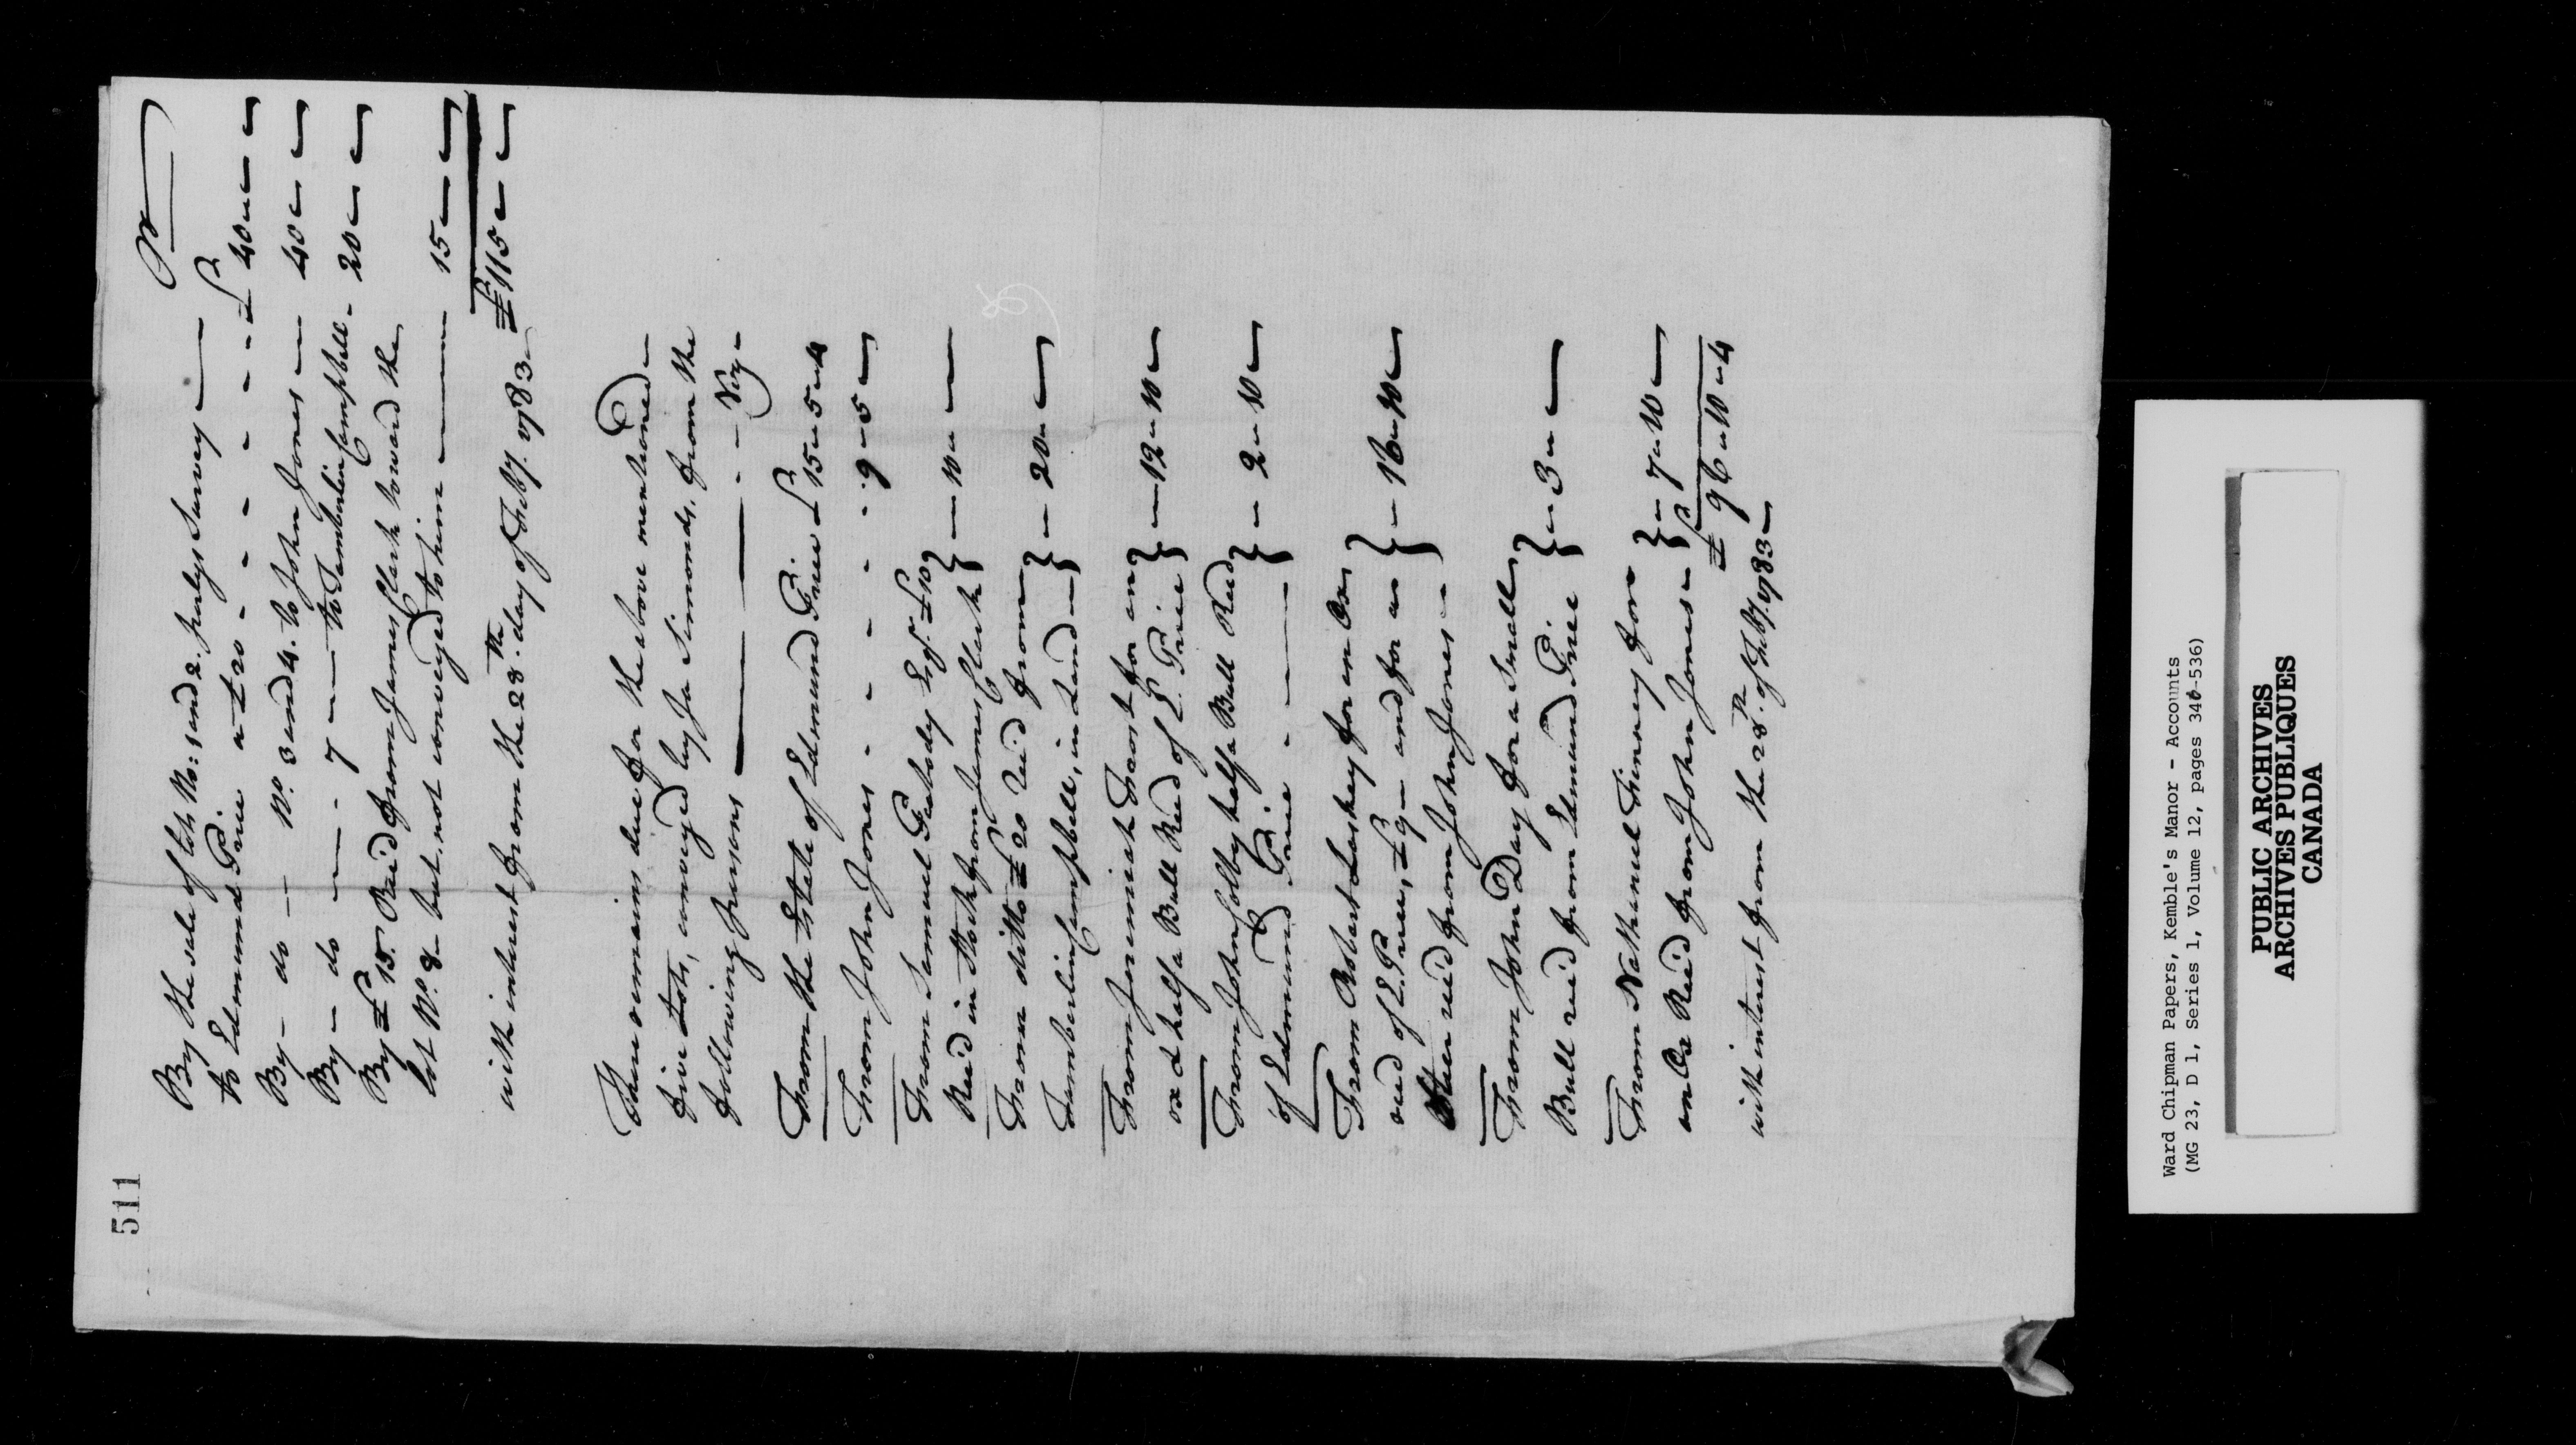 511
Cr
By the sale of lots No: 1 and 2. Perleys Survey —
to Edmund Price a £20 - - - - - - £ 40 „ — „ —
By — do — No. 3 and 4. to John Jones — 40 „ — „ —
By — do — - 7 — to Tamberlin Campbell - 20 „ — „ —
By £15. Rec'd from James Clark toward the
lot No. 8 — but not conveyed to him — 15 „ — „ —
£115 „ — „ —
with interest from the 28th. day of Feby. 1783 —
There remains due for the above mentioned —
five Lots, conveyed by Ja Simonds, from the
following persons — - - Viz —
From the Estate of Edmund Price £ 15 „ 5 „ 4
From John Jones - - - - - 9 „ 5 „ —
From Samuel Peabody Esqr. £10
Recd in Stock from James Clark } — 10 „ — —
From ditto £20 Recd from
Tamberlin Campbell, in Land — } — 20 „ — „ —
From Jeremiah Frost for an
ox & half a Bull Recd of E. Price } — 12 „ 10 „ —
From John Colby half a Bull Recd
of Edmund Price - — } — 2 „ 10 „ —
From Robert Laskey for an Ox
recd of E. Price, £9 — and for an
other recd from John Jones — } — 16 „ 10 „ —
From John Day for a Small
Bull recd from Edmund Price } — 3 „ — „ —
From Nathaniel for
an Ox Recd from John Jones — } — 7 „ 10 „ —
£ 96 „ 10 „ 4
with interest from the 28th. of Feby. 1783 —
Ward Chipman Papers, Kemble's Manor - Accounts
(MG 23, D 1, Series 1, Volume 12, pages 346-536)
PUBLIC ARCHIVES
ARCHIVES PUBLIQUES
CANADA